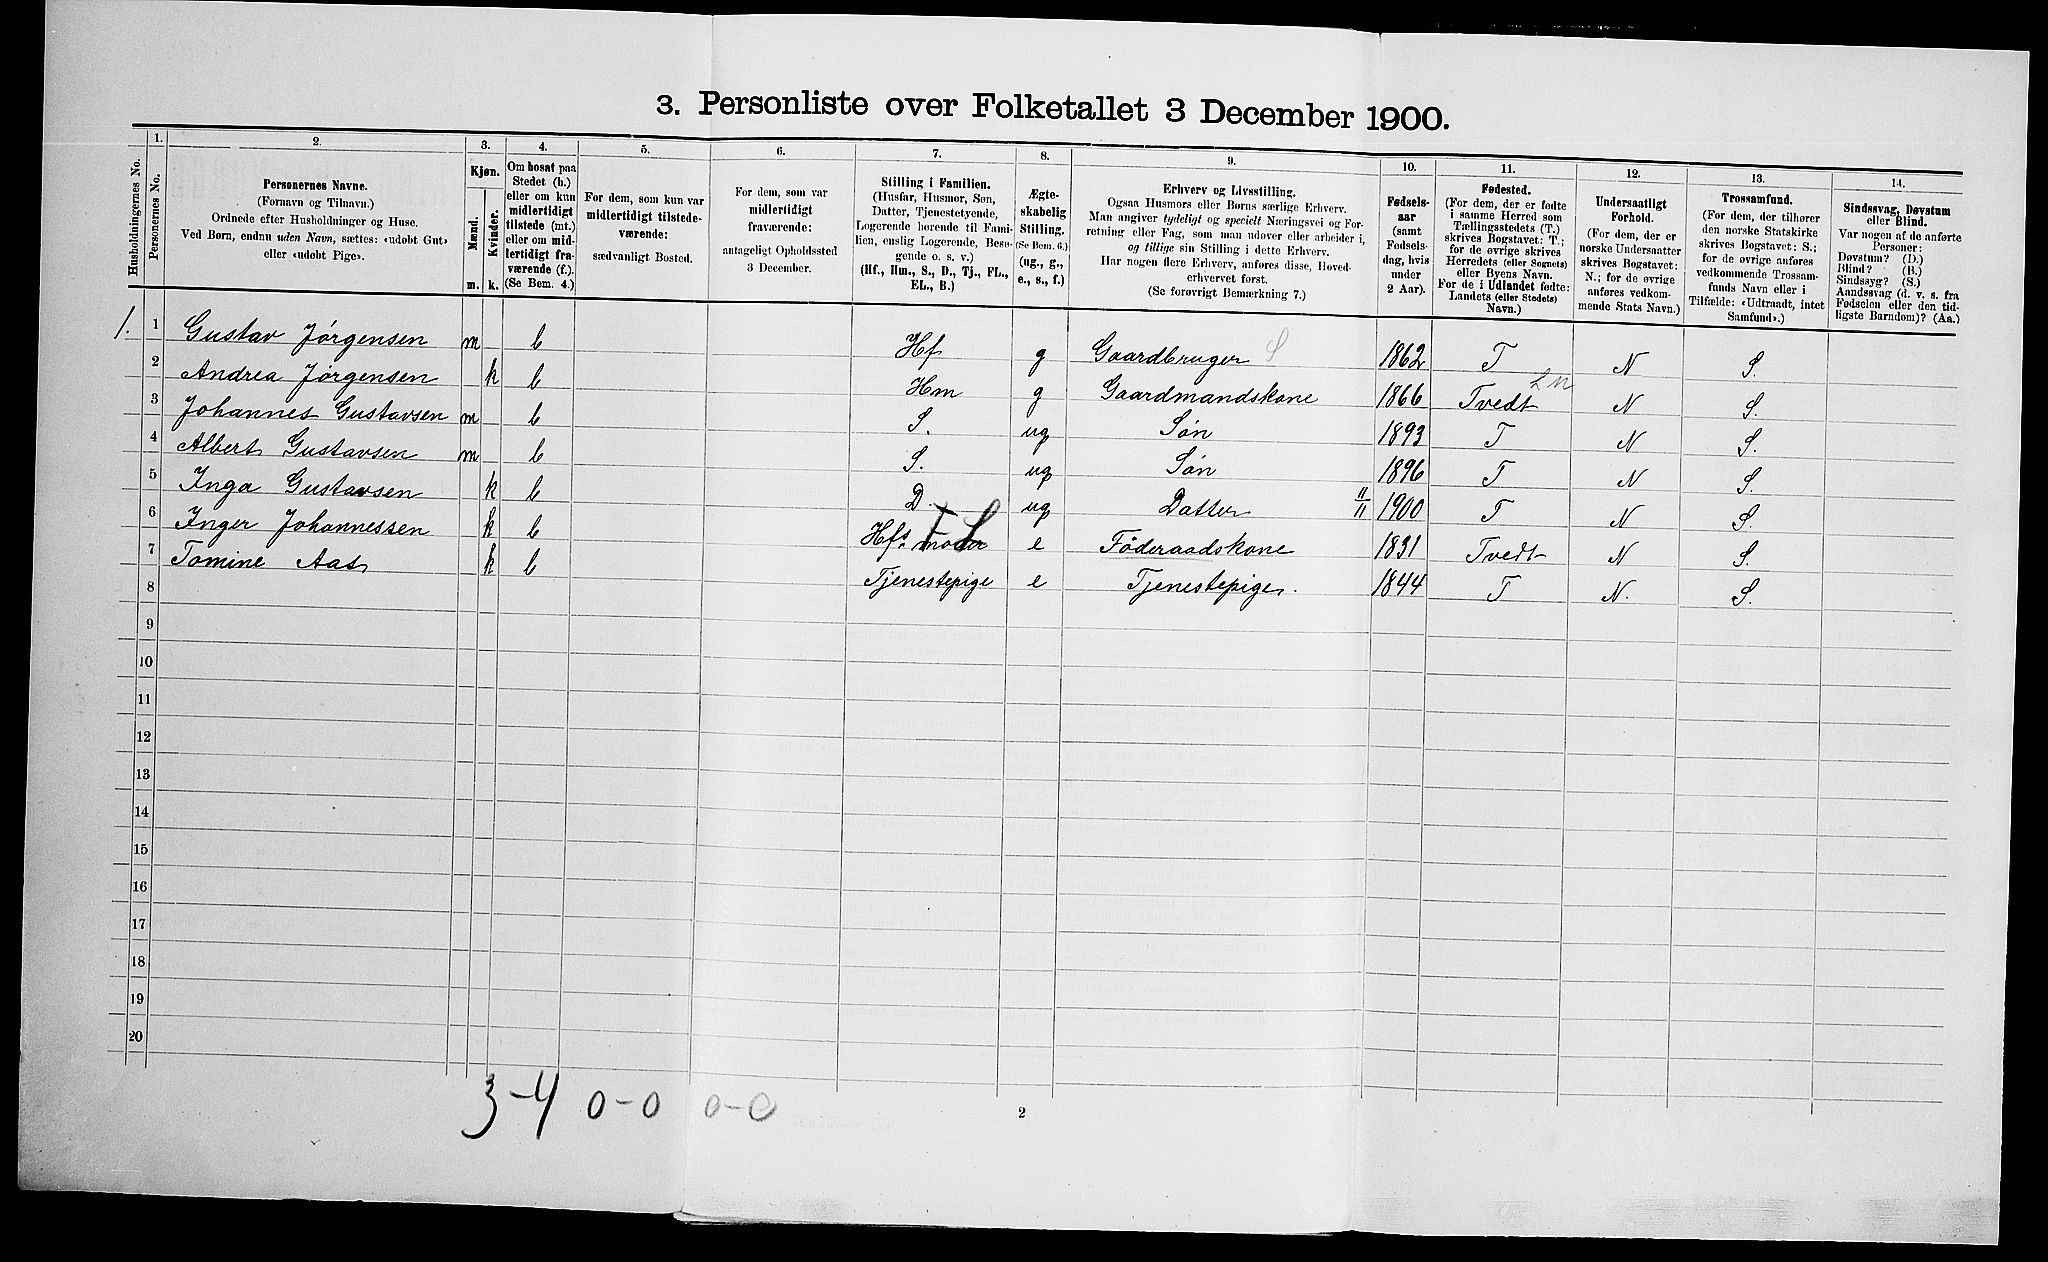 3. Personliste over Folketallet 3 December 1900.
Husholdningernes No.
1.
Personernes No.
2.
Personernes Navne.
(Fornavn og Tilnavn.)
Ordnede efter Husholdninger og Huse.
Ved Børn, endnu uden Navn, sættes: «udøbt Gut»
eller «udøbt Pige».
3.
Kjøn.
Mænd.
Kvinder.
m. k.
4.
Om bosat paa
Stedet (b.)
eller om kun
midlertidigt
tilstede (mt.)
eller om mid-
lertidigt fra-
værende (f.).
(Se Bem. 4.)
5.
For dem, som kun var
midlertidigt tilstede-
værende:
sædvanligt Bosted.
6.
For dem, som var
midlertidigt
fraværende:
antageligt Opholdssted
3 December.
7.
Stilling i Familien.
(Husfar, Husmor, Søn,
Datter, Tjenestetyende,
Logerende hørende til Fami-
lien, enslig Logerende, Besø-
gende o. s. v.)
(Hf., Hm., S., D., Tj., FL.,
EL., B.)
8.
Ægte-
skabelig
Stilling.
(Se Bem. 6.)
(ug., g.,
e., s., f.)
9.
Erhverv og Livsstilling.
Ogsaa Husmors eller Børns særlige Erhverv.
Man angiver tydeligt og specielt Næringsvei og For-
retning eller Fag, som man udøver eller arbeider i,
og tillige sin Stilling i dette Erhverv.
Har nogen flere Erhverv, anføres disse, Hoved-
erhvervet først.
(Se forøvrigt Bemærkning 7.)
10.
Fødsels-
aar
(samt
Fødsels-
dag, hvis
under
2 Aar).
11.
Fødested.
(For dem, der er fødte
i samme Herred som
Tællingsstedets (T.)
skrives Bogstavet: T.;
for de øvrige skrives
Herredets (eller Sognets)
eller Byens Navn.
For de i Udlandet fødte:
Landets (eller Stedets)
Navn.)
12.
Undersaatligt
Forhold.
(For dem, der er
norske Undersaatter
skrives Bogstavet:
N.; for de øvrige
anføres vedkom-
mende Stats Navn.)
13.
Trossamfund.
(For dem, der tilhører
den norske Statskirke
skrives Bogstavet: S.;
for de øvrige anføres
vedkommende Trossam-
funds Navn eller i
Tilfælde: «Udtraadt, intet
Samfund».)
14.
Sindssvag, Døvstum
eller Blind.
Var nogen af de anførte
Personer:
Døvstum? (D.)
Blind? (B.)
Sindssyg? (S.)
Aandssvag (d. v. s. fra
Fødselen eller den tid-
ligste Barndom)? (Aa.)
1. 1 Gustav Jørgensen m b Hf g Gaardbruger S 1862 T N S.
2 Andrea Jørgensen k b Hm g Gaardmandskone 1866 Tvedt N S.
3 Johannes Gustavsen m b S. ug Søn 1893 T N S.
4 Albert Gustavsen m b S. ug Søn 1896 T N S.
5 Inga Gustavsen k b D. ug Datter 11/11 1900 T N S.
6 Inger Johannessen k b Hfs. moder FL e Føderaadskone 1831 Tvedt N S.
7 Tomine Aas k b Tjenestepige e Tjenestepige. 1844 T N. S.
8
9
10
11
12
13
14
15
16
17
18
19
20
3-4 0-0 0-0
2